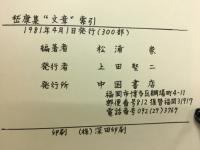 嵆康集“文章”索引
1981年4月1日発行(300部)
編著者 松浦 崇
発行者 上田賢二
発行所 中国書店
福岡市博多区綱場町4-11
郵便番号812 振替福岡31917
電話番号 092(29)3769
印刷 (株)深田印刷